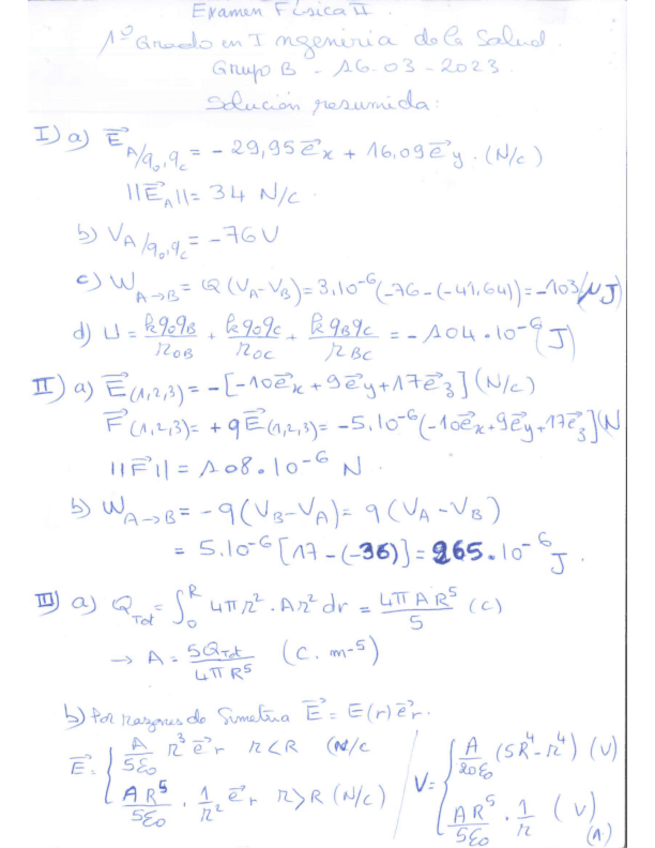 Examen Física II.
1º Grado en Ingenieria de la Salud.
Grupo B - 16-03-2023.
Solución resumida:
I) a) E⃗_{A/q₀,q_c} = - 29,95 e⃗x + 16,09 e⃗y. (N/c)
||E⃗_A|| = 34 N/c.
b) V_{A/q₀,q_c} = -76V
c) W_{A→B} = Q (V_A - V_B) = 3.10^{-6}(-76-(-41,64)) = -103 (μJ)
d) U = kq₀q_B/r_{0B} + kq₀q_c/r_{0C} + kq_Bq_c/r_{BC} = -104.10^{-6} (J)
II) a) E⃗(1,2,3) = -[-10e⃗x + 9e⃗y + 17e⃗z] (N/c)
F⃗(1,2,3) = +qE⃗(1,2,3) = -5.10^{-6}(-10e⃗x + 9e⃗y + 17e⃗z] (N
||F⃗|| = 108.10^{-6} N.
b) W_{A→B} = -q(V_B - V_A) = q(V_A - V_B)
= 5.10^{-6} [17 - (-36)] = 265.10^{-6} J.
III) a) Q_{Tot} = ∫₀^R 4πr². Ar² dr = 4πAR⁵/5 (C)
→ A = 5Q_{Tot}/4πR⁵ (C. m^{-5})
b) Por razones de Simetria E⃗ = E(r) e⃗r.
E⃗ = { A/5ε₀ r³ e⃗r r<R (N/c
AR⁵/5ε₀ . 1/r² e⃗r r>R (N/c)
V = { A/20ε₀ (5R⁴ - r⁴) (V)
AR⁵/5ε₀ . 1/r (V)
(1.)